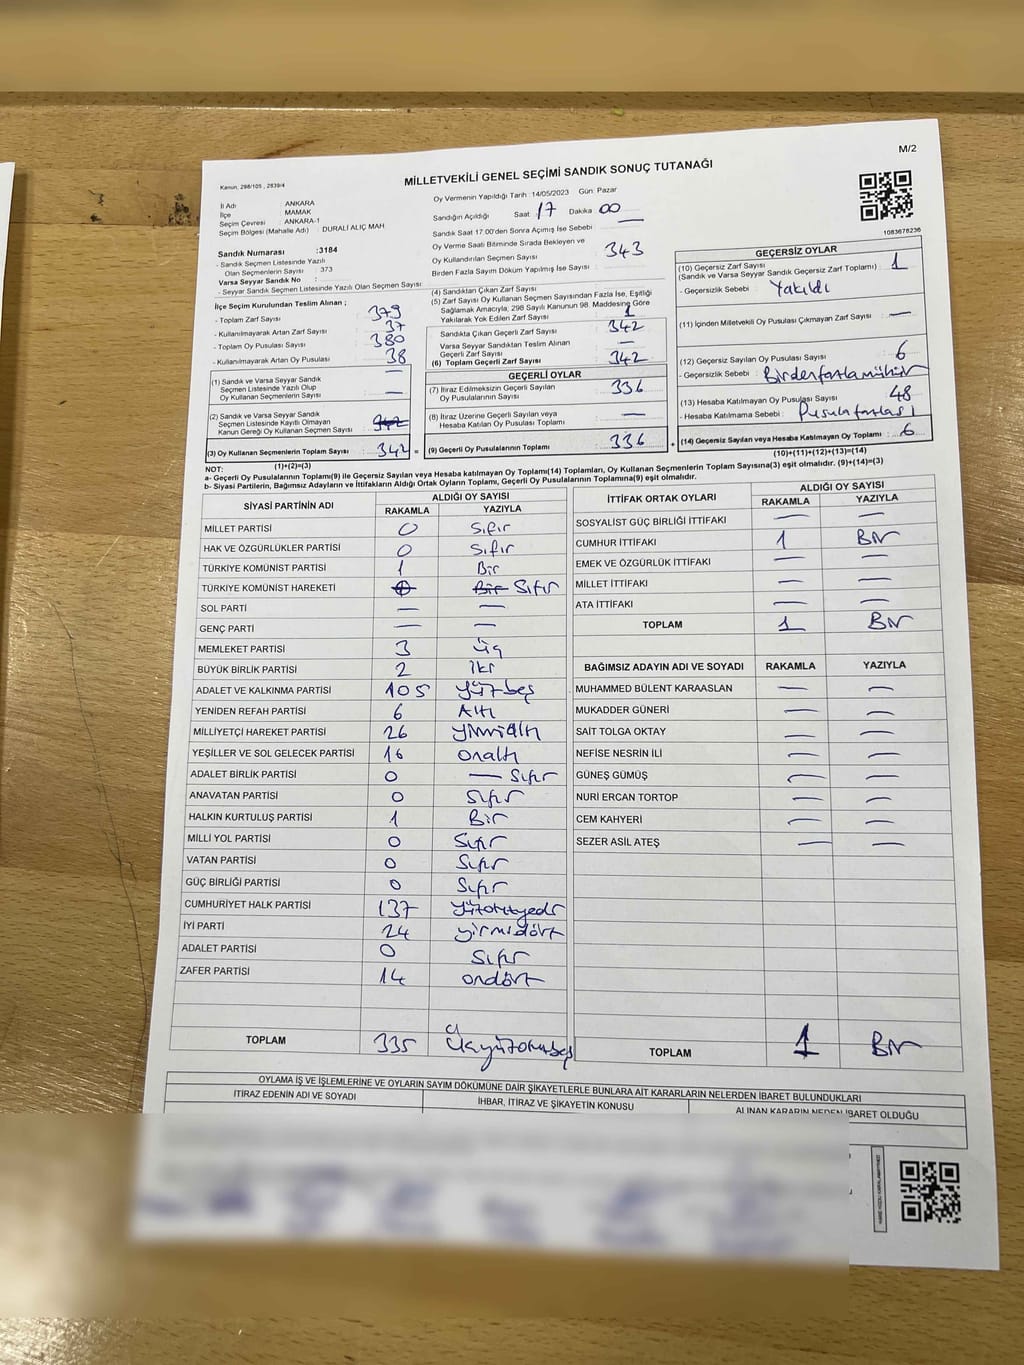 M/2
MİLLETVEKİLİ GENEL SEÇİMİ SANDIK SONUÇ TUTANAĞI
Kanun, 298/105 , 2839/4
İl Adı ANKARA
İlçe MAMAK
Seçim Çevresi ANKARA-1
Seçim Bölgesi (Mahalle Adı) : DURALİ ALIÇ MAH
Sandık Numarası :3184
- Sandık Seçmen Listesinde Yazılı
Olan Seçmenlerin Sayısı : 373
Varsa Seyyar Sandık No :
- Seyyar Sandık Seçmen Listesinde Yazılı Olan Seçmen Sayısı :
İlçe Seçim Kurulundan Teslim Alınan ;
- Toplam Zarf Sayısı : 379
- Kullanılmayarak Artan Zarf Sayısı : 37
- Toplam Oy Pusulası Sayısı : 380
- Kullanılmayarak Artan Oy Pusulası : 38
(1) Sandık ve Varsa Seyyar Sandık
Seçmen Listesinde Yazılı Olup
Oy Kullanan Seçmenlerin Sayısı : —
(2) Sandık ve Varsa Seyyar Sandık
Seçmen Listesinde Kayıtlı Olmayan
Kanun Gereği Oy Kullanan Seçmen Sayısı : 342
(3) Oy Kullanan Seçmenlerin Toplam Sayısı : 342 =
(1)+(2)=(3)
Oy Vermenin Yapıldığı Tarih : 14/05/2023 Gün: Pazar
Sandığın Açıldığı Saat : 17 Dakika 00
Sandık Saat 17:00'den Sonra Açımış İse Sebebi —
Oy Verme Saati Bitiminde Sırada Bekleyen ve
Oy Kullandırılan Seçmen Sayısı : 343
Birden Fazla Sayım Döküm Yapılmış İse Sayısı :
(4) Sandıktan Çıkan Zarf Sayısı :
(5) Zarf Sayısı Oy Kullanan Seçmen Sayısından Fazla İse, Eşitliği
Sağlamak Amacıyla, 298 Sayılı Kanunun 98. Maddesine Göre
Yakılarak Yok Edilen Zarf Sayısı : 1
Sandıkta Çıkan Geçerli Zarf Sayısı : 342
Varsa Seyyar Sandıktan Teslim Alınan
Geçerli Zarf Sayısı : —
(6) Toplam Geçerli Zarf Sayısı : 342
GEÇERLİ OYLAR
(7) İtiraz Edilmeksizin Geçerli Sayılan
Oy Pusulalarının Sayısı : 336
(8) İtiraz Üzerine Geçerli Sayılan veya
Hesaba Katılan Oy Pusulası Toplamı : —
(9) Geçerli Oy Pusulalarının Toplamı : 336 +
1083678236
GEÇERSİZ OYLAR
(10) Geçersiz Zarf Sayısı
(Sandık ve Varsa Seyyar Sandık Geçersiz Zarf Toplamı) : 1
- Geçersizlik Sebebi : Yakıldı
(11) İçinden Milletvekili Oy Pusulası Çıkmayan Zarf Sayısı : —
(12) Geçersiz Sayılan Oy Pusulası Sayısı : 6
- Geçersizlik Sebebi : Birden fazla mühür
(13) Hesaba Katılmayan Oy Pusulası Sayısı : 48
- Hesaba Katılmama Sebebi : Pusula fazlası
(14) Geçersiz Sayılan veya Hesaba Katılmayan Oy Toplamı : 6
(10)+(11)+(12)+(13)=(14)
NOT:
a- Geçerli Oy Pusulalarının Toplamı(9) ile Geçersiz Sayılan veya Hesaba katılmayan Oy Toplamı(14) Toplamları, Oy Kullanan Seçmenlerin Toplam Sayısına(3) eşit olmalıdır. (9)+(14)=(3)
b- Siyasi Partilerin, Bağımsız Adayların ve İttifakların Aldığı Ortak Oyların Toplamı, Geçerli Oy Pusulalarının Toplamına(9) eşit olmalıdır.
SİYASİ PARTİNİN ADI ALDIĞI OY SAYISI
RAKAMLA YAZIYLA
MİLLET PARTİSİ 0 Sıfır
HAK VE ÖZGÜRLÜKLER PARTİSİ 0 Sıfır
TÜRKİYE KOMÜNİST PARTİSİ 1 Bir
TÜRKİYE KOMÜNİST HAREKETİ 0 Bir Sıfır
SOL PARTİ — —
GENÇ PARTİ — —
MEMLEKET PARTİSİ 3 üç
BÜYÜK BİRLİK PARTİSİ 2 iki
ADALET VE KALKINMA PARTİSİ 105 yüzbeş
YENİDEN REFAH PARTİSİ 6 Altı
MİLLİYETÇİ HAREKET PARTİSİ 26 yirmialtı
YEŞİLLER VE SOL GELECEK PARTİSİ 16 onaltı
ADALET BİRLİK PARTİSİ 0 — Sıfır
ANAVATAN PARTİSİ 0 Sıfır
HALKIN KURTULUŞ PARTİSİ 1 Bir
MİLLİ YOL PARTİSİ 0 Sıfır
VATAN PARTİSİ 0 Sıfır
GÜÇ BİRLİĞİ PARTİSİ 0 Sıfır
CUMHURİYET HALK PARTİSİ 137 yüzotuzyedi
İYİ PARTİ 24 yirmidört
ADALET PARTİSİ 0 Sıfır
ZAFER PARTİSİ 14 ondört
TOPLAM 335 Üçyüzotuzbeş
İTTİFAK ORTAK OYLARI ALDIĞI OY SAYISI
RAKAMLA YAZIYLA
SOSYALİST GÜÇ BİRLİĞİ İTTİFAKI — —
CUMHUR İTTİFAKI 1 Bir
EMEK VE ÖZGÜRLÜK İTTİFAKI — —
MİLLET İTTİFAKI — —
ATA İTTİFAKI — —
TOPLAM 1 Bir
BAĞIMSIZ ADAYIN ADI VE SOYADI RAKAMLA YAZIYLA
MUHAMMED BÜLENT KARAASLAN — —
MUKADDER GÜNERİ — —
SAİT TOLGA OKTAY — —
NEFİSE NESRİN İLİ — —
GÜNEŞ GÜMÜŞ — —
NURİ ERCAN TORTOP — —
CEM KAHYERİ — —
SEZER ASİL ATEŞ — —
TOPLAM 1 Bir
OYLAMA İŞ VE İŞLEMLERİNE VE OYLARIN SAYIM DÖKÜMÜNE DAİR ŞİKAYETLERLE BUNLARA AİT KARARLARIN NELERDEN İBARET BULUNDUKLARI
İTİRAZ EDENİN ADI VE SOYADI İHBAR, İTİRAZ VE ŞİKAYETİN KONUSU ALINAN KARARIN NEDEN İBARET OLDUĞU